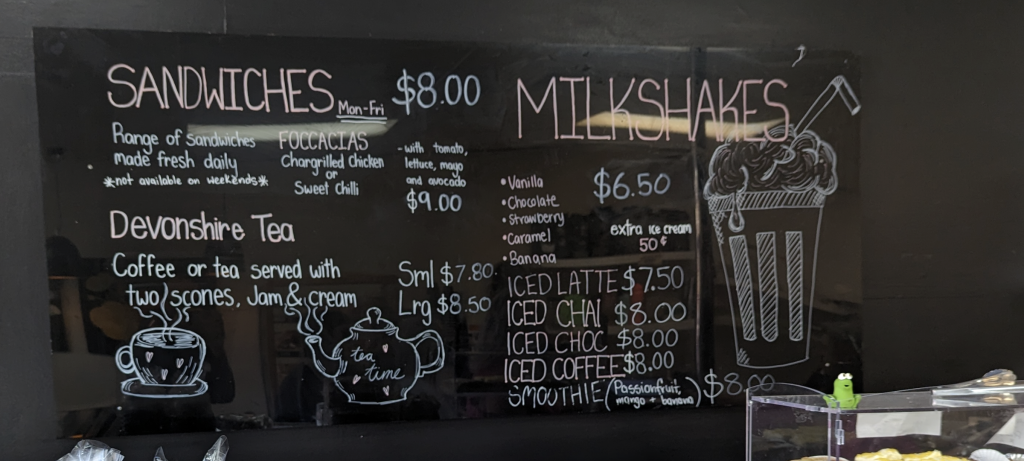 SANDWICHES Mon-Fri $8.00
Range of Sandwiches
made fresh daily
*not available on weekends*
FOCCACIAS
Chargrilled Chicken
or
Sweet Chilli
-with tomato,
lettuce, mayo
and avocado
$9.00
Devonshire Tea
Coffee or tea served with
two scones, Jam & cream
Sml $7.80
Lrg $8.50
tea
time
MILKSHAKES
•Vanilla
•Chocolate
•Strawberry
•Caramel
•Banana
$6.50
extra ice cream
50¢
ICED LATTE $7.50
ICED CHAI $8.00
ICED CHOC $8.00
ICED COFFEE $8.00
SMOOTHIE (Passionfruit, mango + banana) $8.00